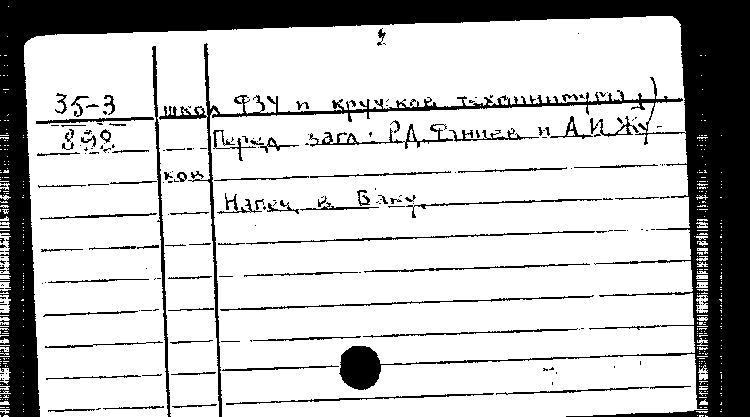 2
35-3 школ ФЗУ и кружков техминимума).
898 Перед загл: Р.Д. Фаниев и А.И. Жу-
ков
Напеч. в Баку.